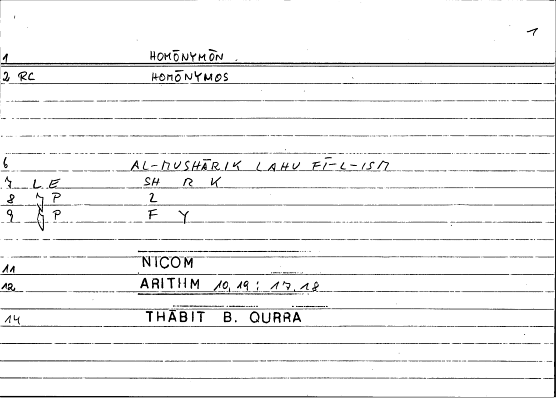 1
1 HOMŌNYMŌN
2 RC HOMŌNYMOS
6 AL-MUSHĀRIK LAHU FĪ-L-ISM
7 L E SH R K
8 P 2
9 P F Y
11 NICOM
12 ARITHM 10,19 : 17,18
14 THĀBIT B. QURRA